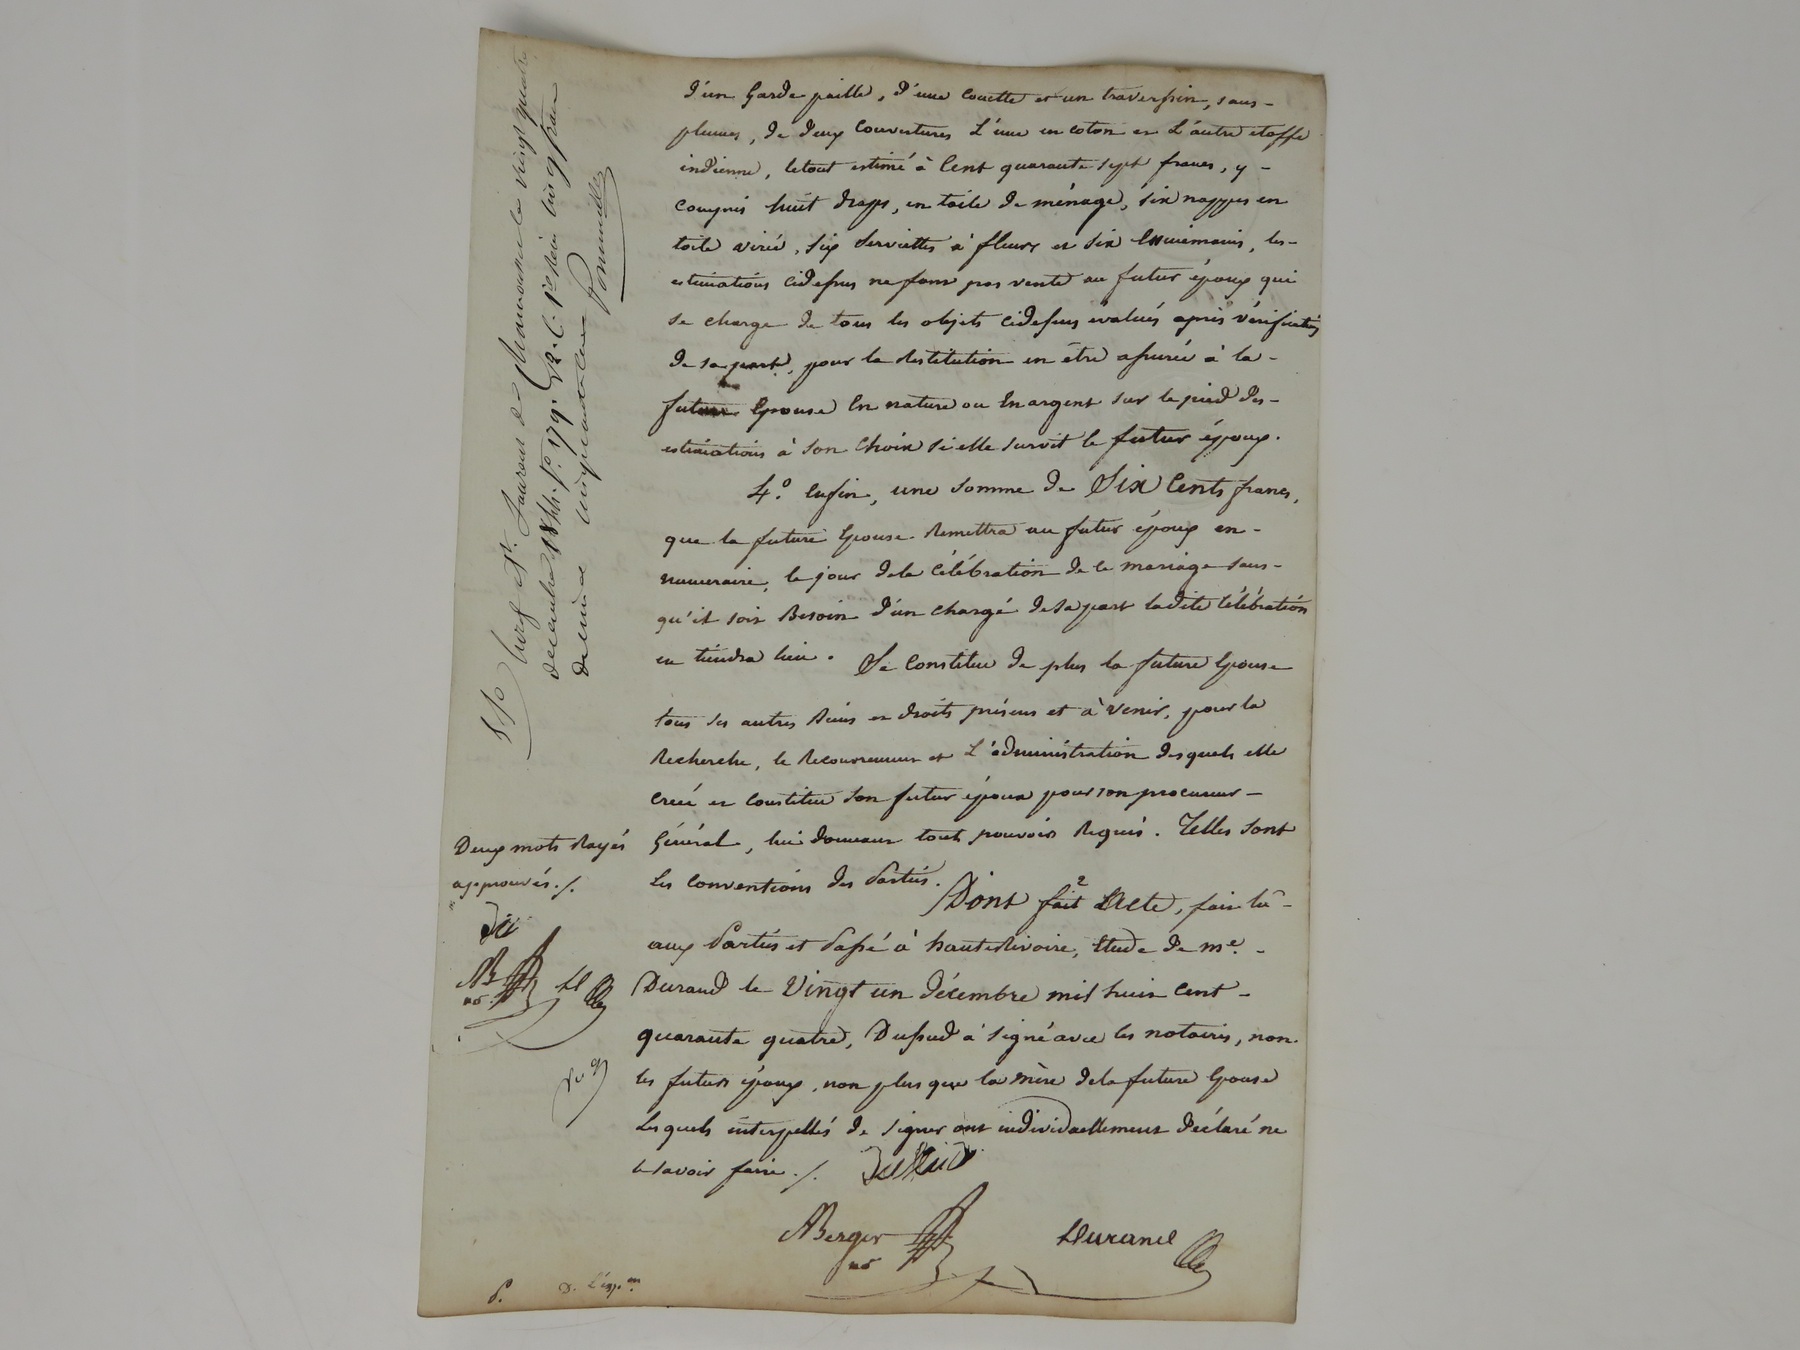 d'un Garde paille, d'une Couette et un traversin, sans-
plumes, de deux Couvertures L'une en coton et L'autre etoffe
indienne, le tout estimé à Cent quarante sept francs, y-
Compris huit draps, en toile de ménage, six nappes en
toile virée, six Serviettes à fleurs et six Essuiemains, les-
estimations cidessus ne font pas vente au futur époux qui
se charge de tous les objets cidessus évalués après vérification
de sa part, pour la Restitution en être assurée à la-
future Epouse En nature ou En argent sur le pied des-
estimations à son Choix si elle survit le futur époux.
4.° Enfin, une Somme de Six Cents francs,
que la future Epouse Remettra au futur époux en-
numeraire, le jour dela Célébration de le mariage sans-
qu'il soit Besoin d'un chargé de sa part ladite Célébration
en tiendra lieu. Se Constitue de plus la future Epouse
tous ses autres Biens et droits présens et à venir, pour la
Recherche, le Recouvrement et L'administration desquels elle
Créé et Constitue Son futur époux pour son procureur-
Général, lui donnant tout pouvoir Requis. Telles Sont
Les Conventions des Parties.
Dont fait 2 Acte, fait lû-
aux Parties et Passé à hauterivoire, Etude de me.-
Durand le Vingt un décembre mil huit Cent-
quarante quatre, Dussud a signé avec les notaires, non
les futurs époux, non plus que la mère dela future Epouse
Lesquels interpellés de Signer ont individuellement déclaré ne
le savoir faire ./. Dussud
ABerger no Durand
Deux mots Rayés
approuvés ./.
Du
AB no D
Enreg. à St. Laurent de Chamousset le vingt quatre
décembre 1844. f.° 179. V.° C. 1re Reçu cinq francs
decime cinquante cent